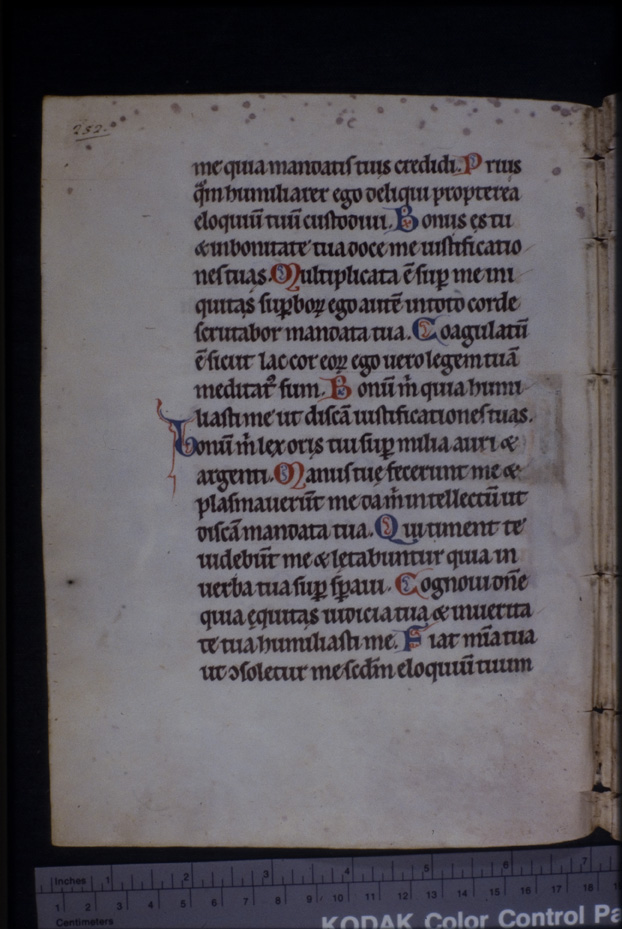 252.
me quia mandatis tuis credidi. Prius
q̄m humiliarer ego deliqui propterea
eloquiū tuū custodiui. Bonus es tu
& in bonitate tua doce me iustificatio
nes tuas. Multiplicata ē sup̱ me ini
quitas sup̱boꝝ ego autē in toto corde
scrutabor mandata tua. Coagulatū
ē sicut lac cor eoꝝ ego uero legem tuā
meditatꝰ sum. Bonū m̄ quia humi
liasti me ut discā iustificationes tuas.
bonū m̄ lex oris tui sup̱ milia auri &
argenti. Manus tuę fecerunt me &
plasmauerūt me da m̄ intellectū ut
discā mandata tua. Qui timent te
uidebūt me & lętabuntur quia in
uerba tua sup̱ sp̱aui. Cognoui dn̄e
quia ęquitas iudicia tua & in uerita
te tua humiliasti me. Fiat mīa tua
ut ↄsoletur me scdm̄ eloquiū tuum
Inches 1 2 3 4 5 6 7
1 2 3 4 5 6 7 8 9 10 11 12 13 14 15 16 17 18
Centimeters
KODAK Color Control Pa